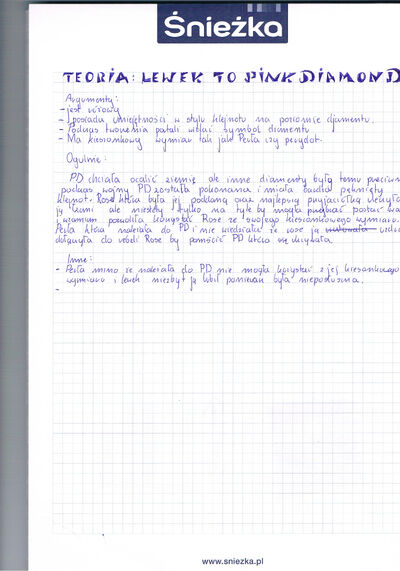 Śnieżka
TEORIA: LEWEK TO PINK DIAMOND
Argumenty:
- jest różowy
- posiada umiejętności w stylu klejnotu na poziomie djamentu.
- Podczas tworzenia patali widać symbol diamentu
- Ma kieszonkowy wymiar tak jak Perła czy perydot.
Ogólnie:
PD chciała ocalić ziemię ale inne diamenty były temu przeciwn
podczas wojny PD została pokonana i miała bardzo pęknięty
klejnot. Rose która była jej poddaną oraz najlepszą przyjaciółką uleczyła
ją łzami ale niestety tylko na tyle by mogła przybrać postać lwa
i wzamian pozwoliła korzystać Rose ze swojego kieszonkowego wymiaru.
Perła która należała do PD i nie wiedziała że rose ją
dołączyła do rebeli Rose by pomścić PD która się ukrywała.
Inne:
- Perła mimo że należała do PD nie mogła korzystać z jej kieszonkowego
wymiaru i lewek niezbyt ją lubił ponieważ była nieposłuszna.
-
www.sniezka.pl